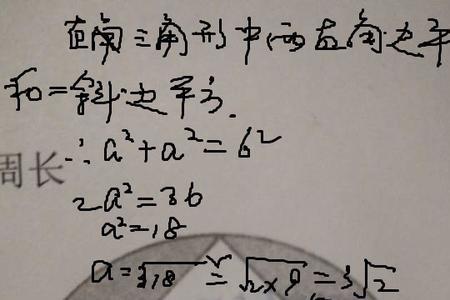 在直角三角形中两直角边平
和=斜边平方.
∴ a²+a²=6²
周长
2a²=36
a²=18
a=√18 = √2×9 = 3√2